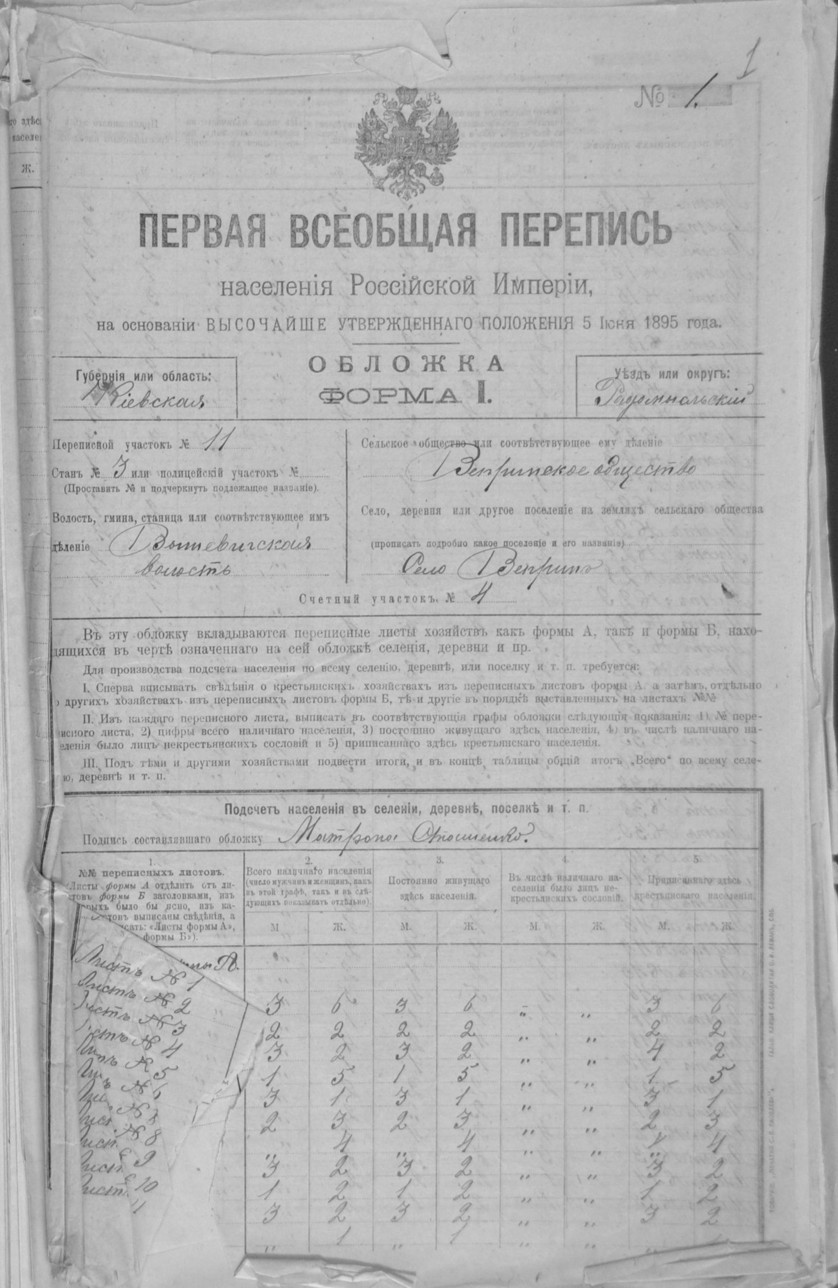 1
№ 1.
го здѣс
населе
Ж.
ПЕРВАЯ ВСЕОБЩАЯ ПЕРЕПИСЬ
населенія Россійской Имперіи,
на основаніи ВЫСОЧАЙШЕ УТВЕРЖДЕННАГО ПОЛОЖЕНІЯ 5 Іюня 1895 года.
ОБЛОЖКА
ФОРМА I.
Губернія или область:
Кіевская
Уѣздъ или округъ:
Радомысльскій
Переписной участокъ № 11
Станъ № 3 или полицейскій участокъ №
(Проставить № и подчеркнуть подлежащее названіе).
Волость, гмина, станица или соотвѣтствующее имъ
дѣленіе
волость
Сельское общество или соотвѣтствующее ему дѣленіе
Вепринское общество
Село, деревня или другое поселеніе на земляхъ сельскаго общества
(прописать подробно какое поселеніе и его названіе)
Село Вепринъ
Счетный участокъ № 4
Въ эту обложку вкладываются переписные листы хозяйствъ какъ формы А, такъ и формы Б, нахо-
дящихся въ чертѣ означеннаго на сей обложкѣ селенія, деревни и пр.
Для производства подсчета населенія по всему селенію, деревнѣ, или поселку и т. п. требуется:
I. Сперва вписывать свѣдѣнія о крестьянскихъ хозяйствахъ изъ переписныхъ листовъ формы А, а затѣмъ, отдѣльно
о другихъ хозяйствахъ изъ переписныхъ листовъ формы Б, тѣ и другіе въ порядкѣ выставленныхъ на листахъ №№
II. Изъ каждаго переписного листа, выписать въ соотвѣтствующія графы обложки слѣдующія показанія: 1) № пере-
писного листа, 2) цифры всего наличнаго населенія, 3) постоянно живущаго здѣсь населенія, 4) въ числѣ наличнаго на-
селенія было лицъ некрестьянскихъ сословій и 5) приписаннаго здѣсь крестьянскаго населенія.
III. Подъ тѣми и другими хозяйствами подвести итоги, и въ концѣ таблицы общій итогъ „Всего“ по всему селе-
ю, деревнѣ и т. п.
Подсчетъ населенія въ селеніи, деревнѣ, поселкѣ и т. п.
Подпись составлявшаго обложку
1. 2. 3. 4. 5.
№№ переписныхъ листовъ.
(Листы формы А отдѣлить отъ ли-
стовъ формы Б заголовками, изъ
которыхъ было бы ясно, изъ ка-
листовъ выписаны свѣдѣнія, а
писать: «Листы формы А»,
формы Б»).
Всего наличнаго населенія
(число мужчинъ и женщинъ, какъ
въ этой графѣ, такъ и въ слѣ-
дующихъ показывать отдѣльно)
Постоянно живущаго
здѣсь населенія.
Въ числѣ наличнаго на-
селенія было лицъ не-
крестьянскихъ сословій.
Приписаннаго здѣсь
крестьянскаго населенія.
М. Ж. М. Ж. М. Ж. М. Ж.
Листъ № 1 3 6 3 6 „ „ 3 6
Листъ № 2 2 2 2 2 „ „ 2 2
Листъ № 3 3 2 3 2 „ „ 4 2
Листъ № 4 1 5 1 5 „ „ 1 5
№ 5 3 1 3 1 „ „ 3 1
№ 6 2 3 2 3 „ „ 2 3
№ 7 „ 4 „ 4 „ „ 4
№ 8 3 2 3 2 „ „ 3 2
Лист 9 1 2 1 2 „ „ 1 2
Лист 10 3 2 3 2 „ „ 3 2
Лист „ 1 „ 1 „ „